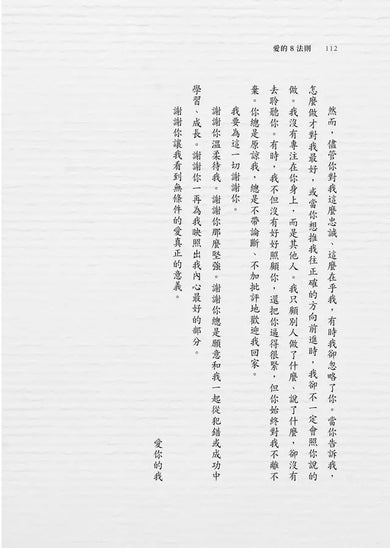 愛的8法則 112
然而，儘管你對我這麼忠誠、這麼在乎我，有時我卻忽略了你。當你告訴我，
怎麼做才對我最好，或當你想推我往正確的方向前進時，我卻不一定會照你說的
做。我沒有專注在你身上，而是其他人。我只顧別人做了什麼、說了什麼，卻沒有
去聆聽你。有時，我不但沒有好好照顧你，還把你逼得很緊，但你始終對我不離不
棄。你總是原諒我，總是不帶論斷、不加批評地歡迎我回家。
我要為這一切謝謝你。
謝謝你溫柔待我。謝謝你那麼堅強。謝謝你總是願意和我一起從犯錯或成功中
學習、成長。謝謝你一再為我映照出我內心最好的部分。
謝謝你讓我看到無條件的愛真正的意義。
愛你的我